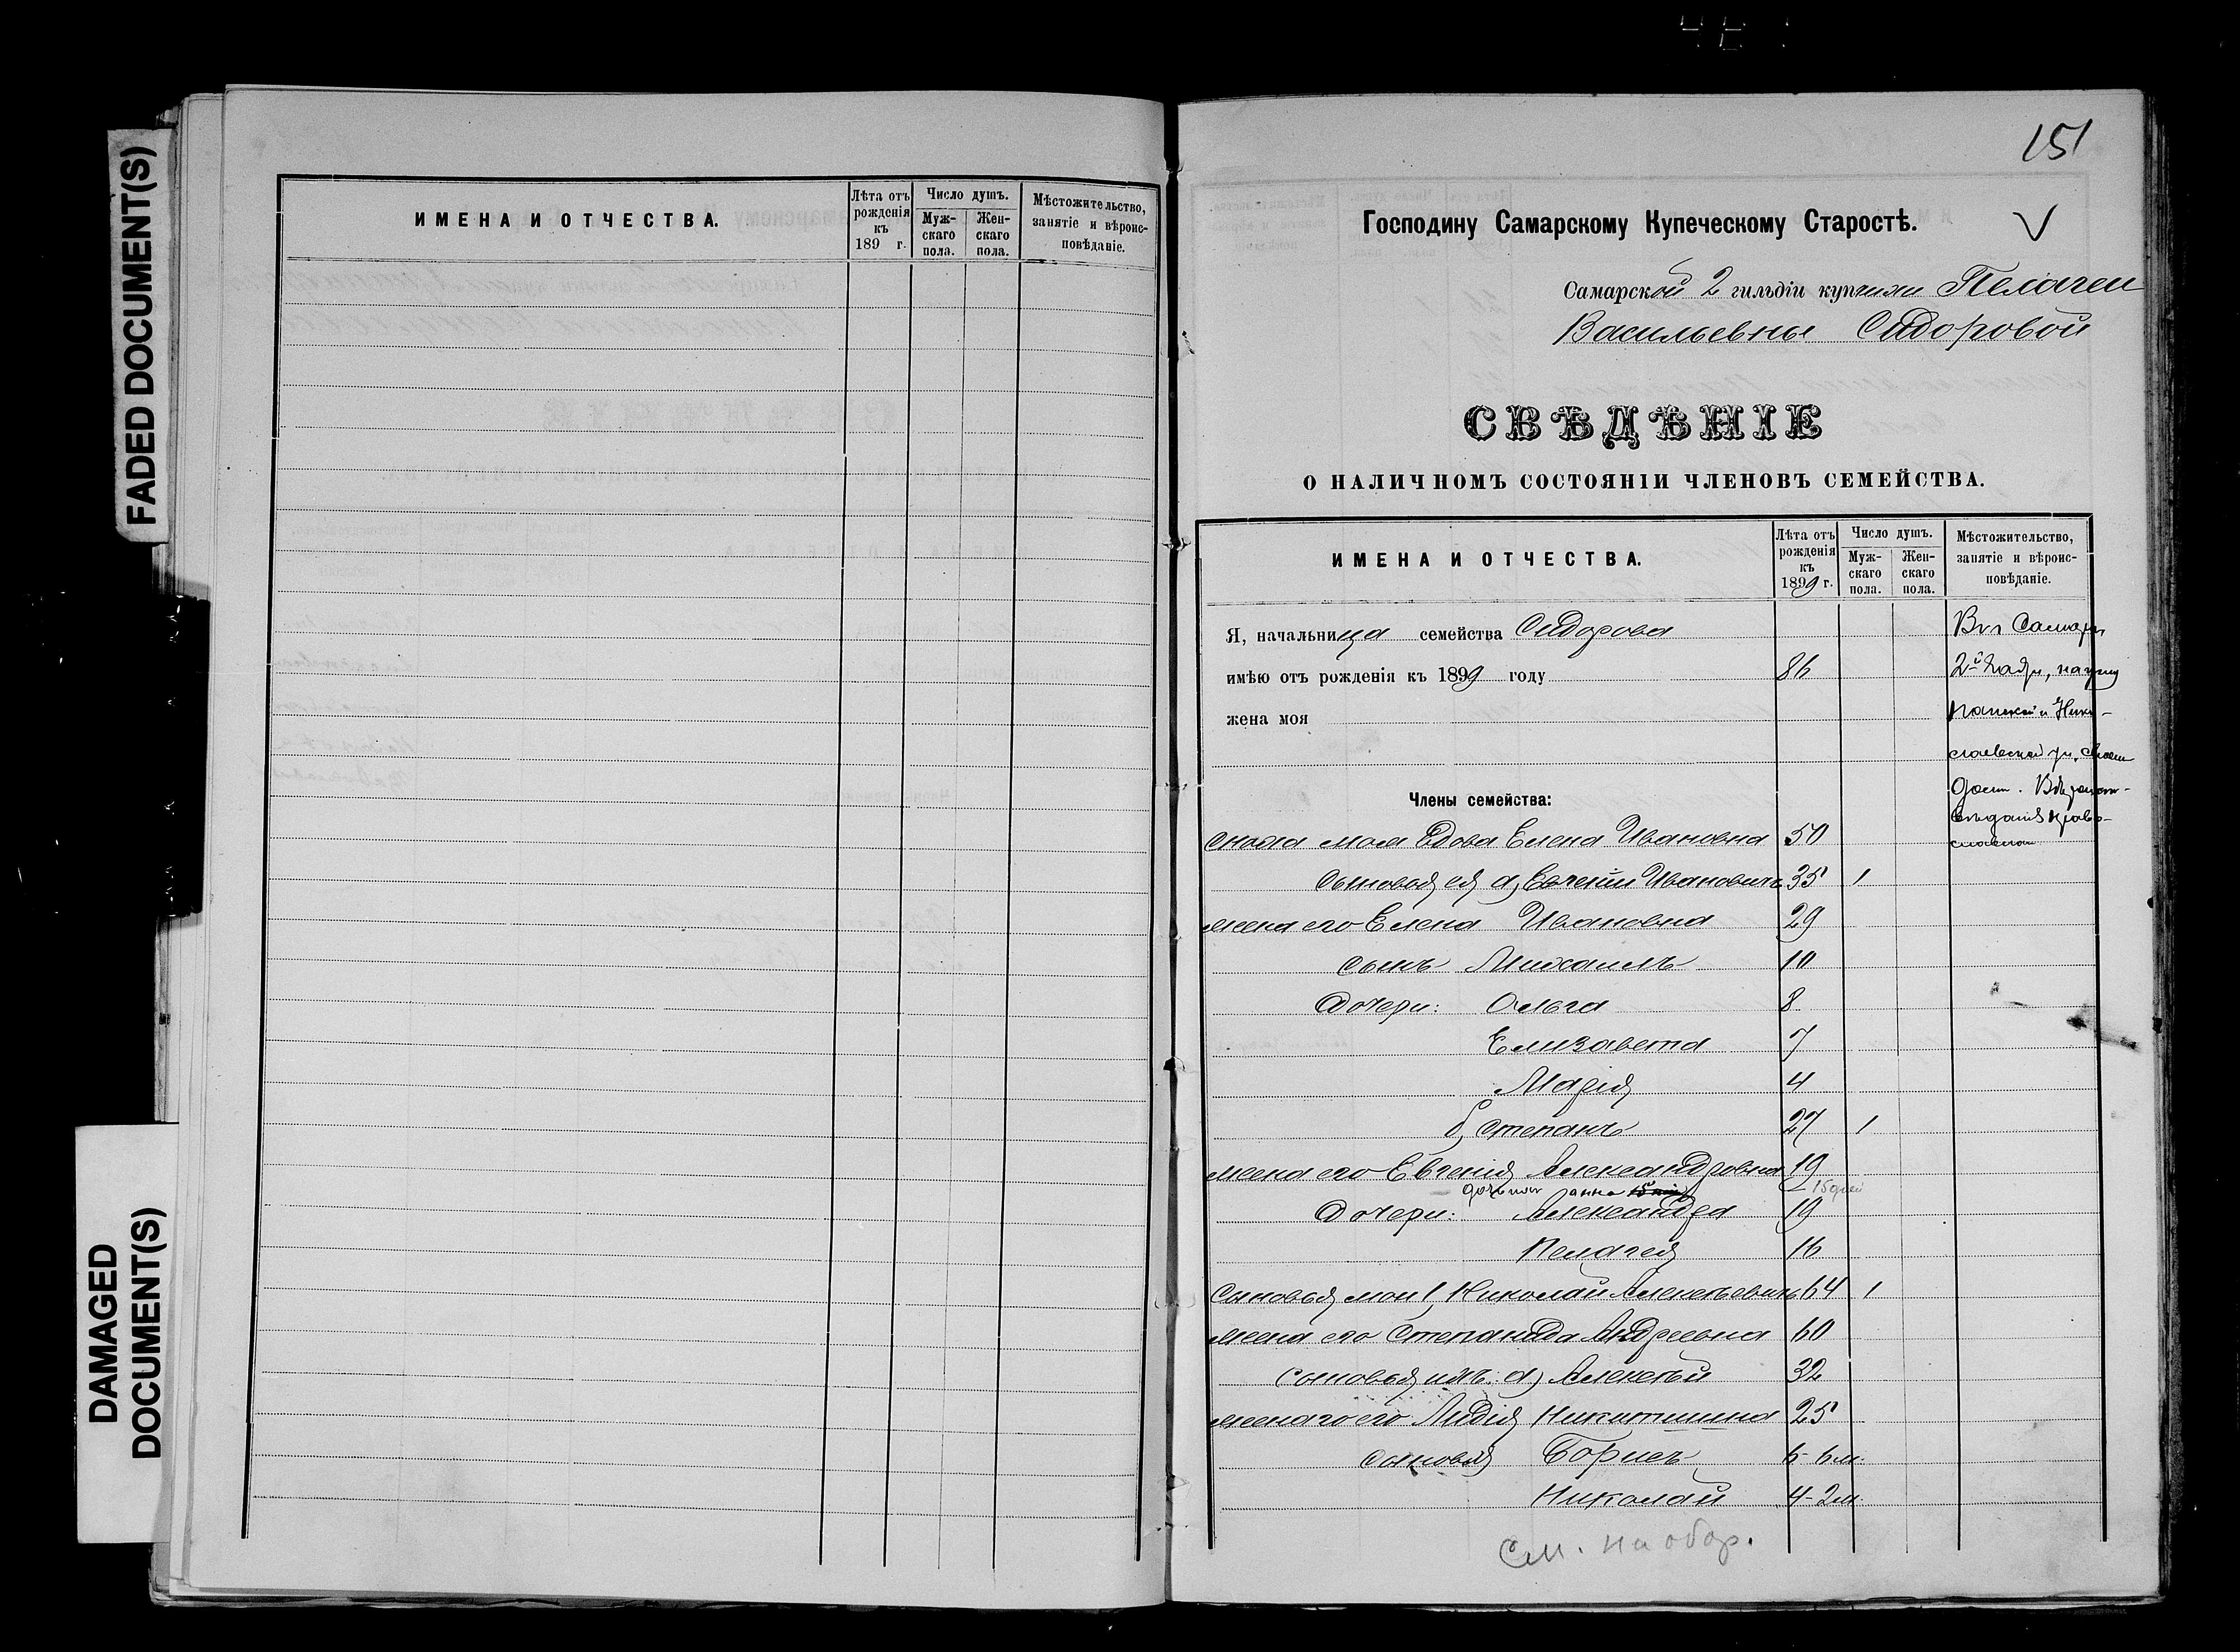 FADED DOCUMENT(S)
DAMAGED
DOCUMENT(S)
ИМЕНА И ОТЧЕСТВА.
Лѣта отъ
рожденія
къ
189 г.
Число душъ.
Муж-
скаго
пола.
Жен-
скаго
пола.
Мѣстожительство,
занятіе и вѣроис-
повѣданіе.
151
Господину Самарскому Купеческому Старостѣ.
Самарской 2 гильдіи купчихи Пелагеи
Васильевны Сидоровой
СВѢДѢНІЕ
О НАЛИЧНОМЪ СОСТОЯНІИ ЧЛЕНОВЪ СЕМЕЙСТВА.
ИМЕНА И ОТЧЕСТВА.
Лѣта отъ
рожденія
къ
1899 г.
Число душъ.
Муж-
скаго
пола.
Жен-
скаго
пола.
Мѣстожительство,
занятіе и вѣроис-
повѣданіе.
Я, начальница семейства Сидорова
имѣю отъ рожденія къ 1899 году 86
жена моя
Члены семейства:
Въ Самарѣ
2й части, на углу
Панской и Нико-
лаевской ул.
сноха моя вдова Елена Ивановна 50
Сыновья ея а) Евгеній Ивановичъ 35 1
жена его Елена Ивановна 29
сынъ Михаилъ 10
Дочери: Ольга 8
Елизавета 7
Марія 4
б) Степанъ 27 1
жена его Евгенія Александровна 19
дочь их Анна 15 дней
Дочери: Александра 19
Пелагея 16
Сыновья мои 1, Николай Алексѣевичъ 64 1
жена его Степанида Андреевна 60
сыновья ихъ: а) Алексѣй 32
жена его Лидія Никитишна 25
сыновья Борисъ 6-6 м.
Николай 4-2 м.
См. на обор.